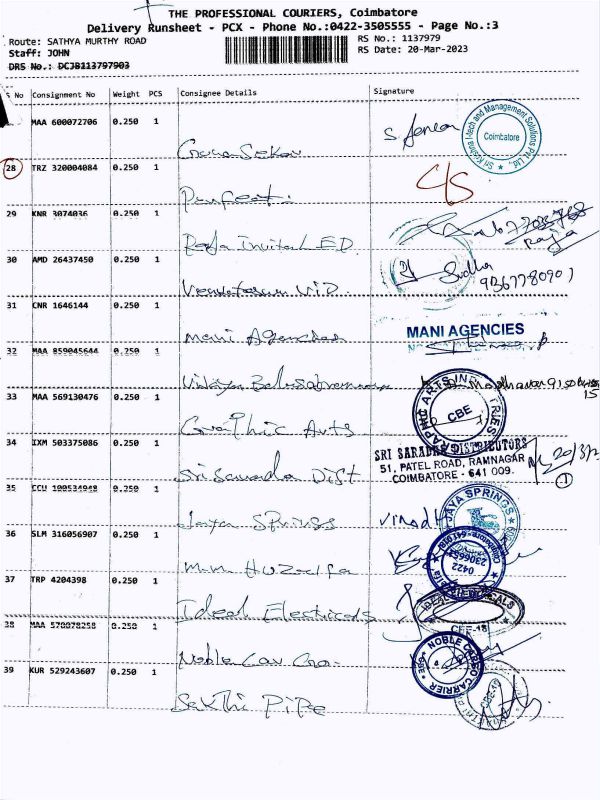 THE PROFESSIONAL COURIERS, Coimbatore
Delivery Runsheet - PCX - Phone No.:0422-3505555 - Page No.:3
Route: SATHYA MURTHY ROAD
RS No.: 1137979
Staff: JOHN
RS Date: 20-Mar-2023
DRS No.: DCJB113797903
S No Consignment No Weight PCS Consignee Details Signature
MAA 600072706 0.250 1
Sri Krishna I-tech and Management Solutions Pvt Ltd.,
Coimbatore
Guna Sekar
28 TRZ 320004084 0.250 1
C/S
Perfect
29 KNR 3074036 0.250 1
Raja
Raja Invita LED
30 AMD 26437450 0.250 1
Sudha
9367780901
31 CNR 1646144 0.250 1
Mani Agencies
MANI AGENCIES
32 MAA 859045644 0.250 1
Vijaya Balasabramaniya
33 MAA 569130476 0.250 1
GRAPHIC ARTS INDUSTRIES
CBE
Graphic Arts
34 IXM 503375086 0.250 1
SRI SARADHA DISTRIBUTORS
51, PATEL ROAD, RAMNAGAR
COIMBATORE - 641 009.
Sri Sarada Dist
35 CCU 100534948 0.250 1
JAYA SPRINGS
Jaya Springs
Vinodh
36 SLM 316056907 0.250 1
0422
2306651
Huzaifa
37 TRP 4204398 0.250 1
Ideal Electricals
CBE-18
38 MAA 570078258 0.250 1
NOBLE CARGO CARRIER
Noble Car
39 KUR 529243607 0.250 1
CBE-18
Sakthi Pipe